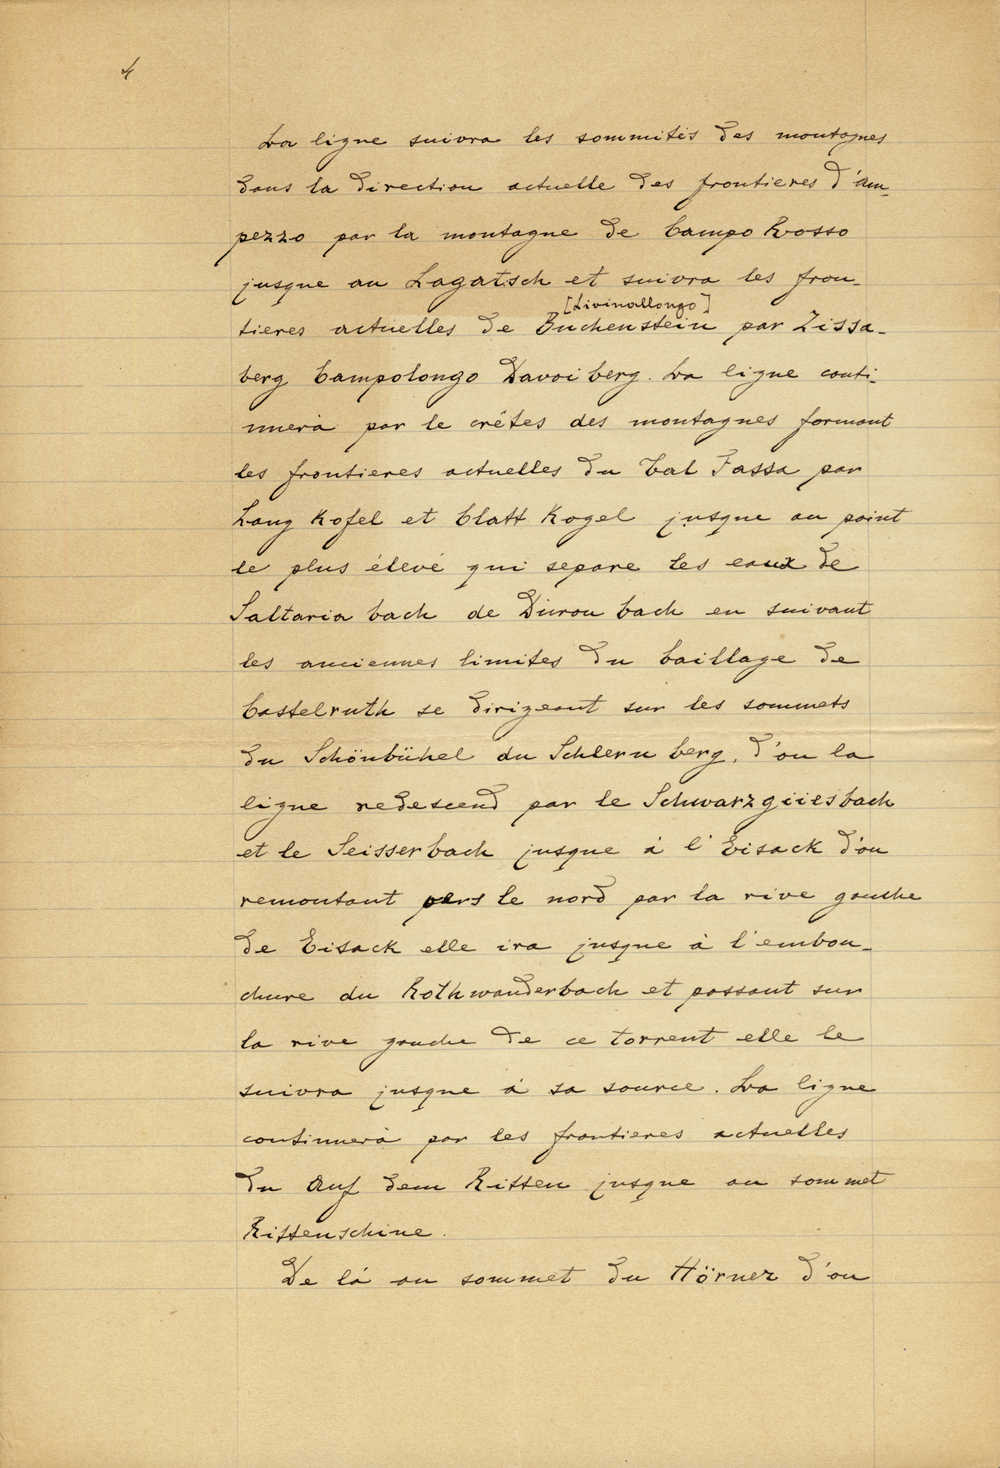 4
La ligne suivra les sommités des montagnes
dans la direction actuelle des frontieres d'am-
pezzo par la montagne de Campo Rosso
jusque au Lagatsch et suivra les fron-
[Livinallongo]
tieres actuelles de Buchenstein par Zissa-
berg Campolongo Davoi berg. La ligne conti-
nuerà par le crêtes des montagnes formant
les frontieres actuelles du Val Fassa par
Lang Kofel et Platt Kogel jusque au point
le plus élevé qui separe les eaux de
Saltaria bach de Duron bach en suivant
les anciennes limites du baillage de
Castelruth se dirigeant sur les sommets
du Schönbühel du Schlern berg, d'ou la
ligne redescend par le Schwarzgriesbach
et le Seisserbach jusque à l'Eisack d'ou
remontant vers le nord par la rive gauche
de Eisack elle ira jusque à l'embou-
chure du Rothwanderbach et passant sur
la rive gauche de ce torrent elle le
suivra jusque à sa source. La ligne
continuerà par les frontieres actuelles
du Auf dem Ritten jusque au sommet
Rittenschine.
De là au sommet du Hörner d'ou